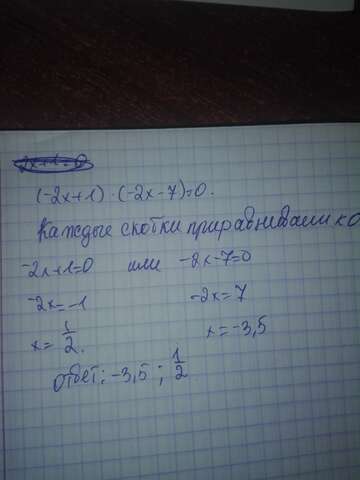 2x+1=0
(-2x+1)·(-2x-7)=0.
Каждые скобки приравниваем к 0
-2x+1=0 или -2x-7=0
-2x=-1 -2x=7
x=1/2. x=-3,5
ответ: -3,5; 1/2